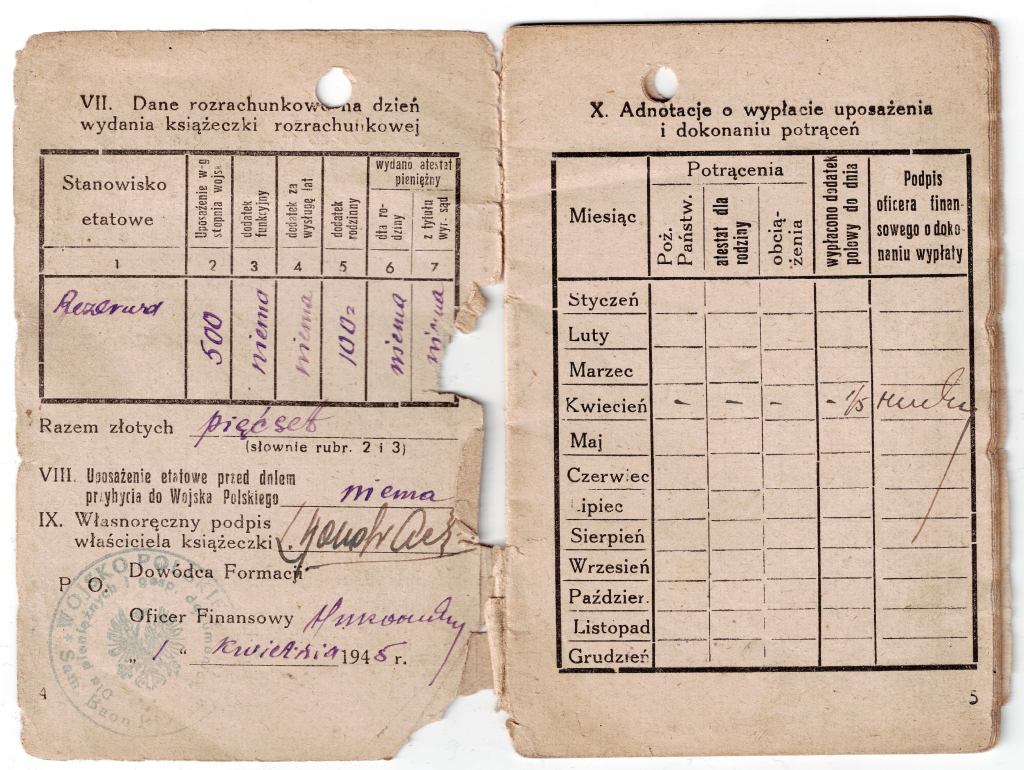 VII. Dane rozrachunkowe na dzień
wydania książeczki rozrachunkowej
Stanowisko
etatowe
Uposażenie w-g
stopnia wojsk
dodatek
funkcyjny
dodatek za
wysługę lat
dodatek
rodzinny
wydano atestat
pieniężny
dla ro-
dziny
z tytułu
wyr. sąd
1 2 3 4 5 6 7
Rezerwa 500 niema niema 100z niema niema
Razem złotych pięćset
(słownie rubr. 2 i 3)
VIII. Uposażenie etatowe przed dniem
przybycia do Wojska Polskiego niema
IX. Własnoręczny podpis
właściciela książeczki
P. O. Dowódca Formacji
Oficer Finansowy
„ 1 “ Kwietnia 1945 r.
WOJSKO POLSKIE
4
X. Adnotacje o wypłacie uposażenia
i dokonaniu potrąceń
Miesiąc
Potrącenia
Poż.
Państw.
atestat dla
rodziny
obcią-
żenia
wypłacono dodatek
polowy do dnia
Podpis
oficera finan-
sowego o doko-
naniu wypłaty
Styczeń
Luty
Marzec
Kwiecień - - - - 1/5
Maj
Czerwiec
Lipiec
Sierpień
Wrzesień
Paździer.
Listopad
Grudzień
5